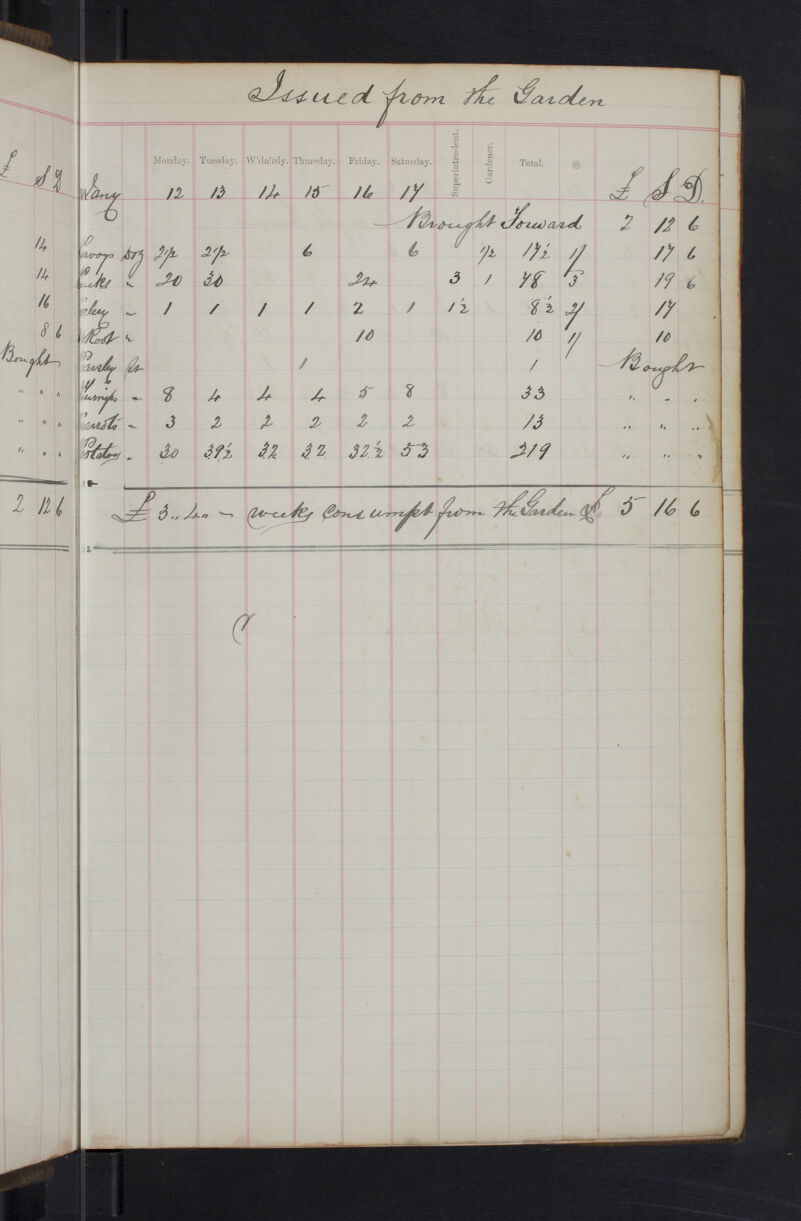 £ S D
14
14
16
8 6
Bought
" " "
" " "
" " "
2 12 6
Issued from the Garden
Monday. Tuesday. W'dn'sdy. Thursday. Friday. Saturday. Superintendent. Gardener. Total. @
Jany 12 13 14 15 16 17 £ S D.
Brought Forward 2 12 6
Savoys Doz 2 1/2 2 1/2 6 6 1/2 17 1/2 1/ 17 6
Leeks " 20 30 24 3 1 78 3 19 6
Celery " 1 1 1 1 2 1 1 1/2 8 1/2 2/ 17
Root " 10 10 1/ 10
Parsley 1 1 Bought
Turnips " 8 4 4 4 5 8 33 " " "
Carrots " 3 2 2 2 2 2 13 " " "
Potatoes " 30 39 1/2 32 32 32 1/2 53 219 " " "
10
£ 3 " 4 " - weeks consumpt from the Garden £ 5 16 6
12